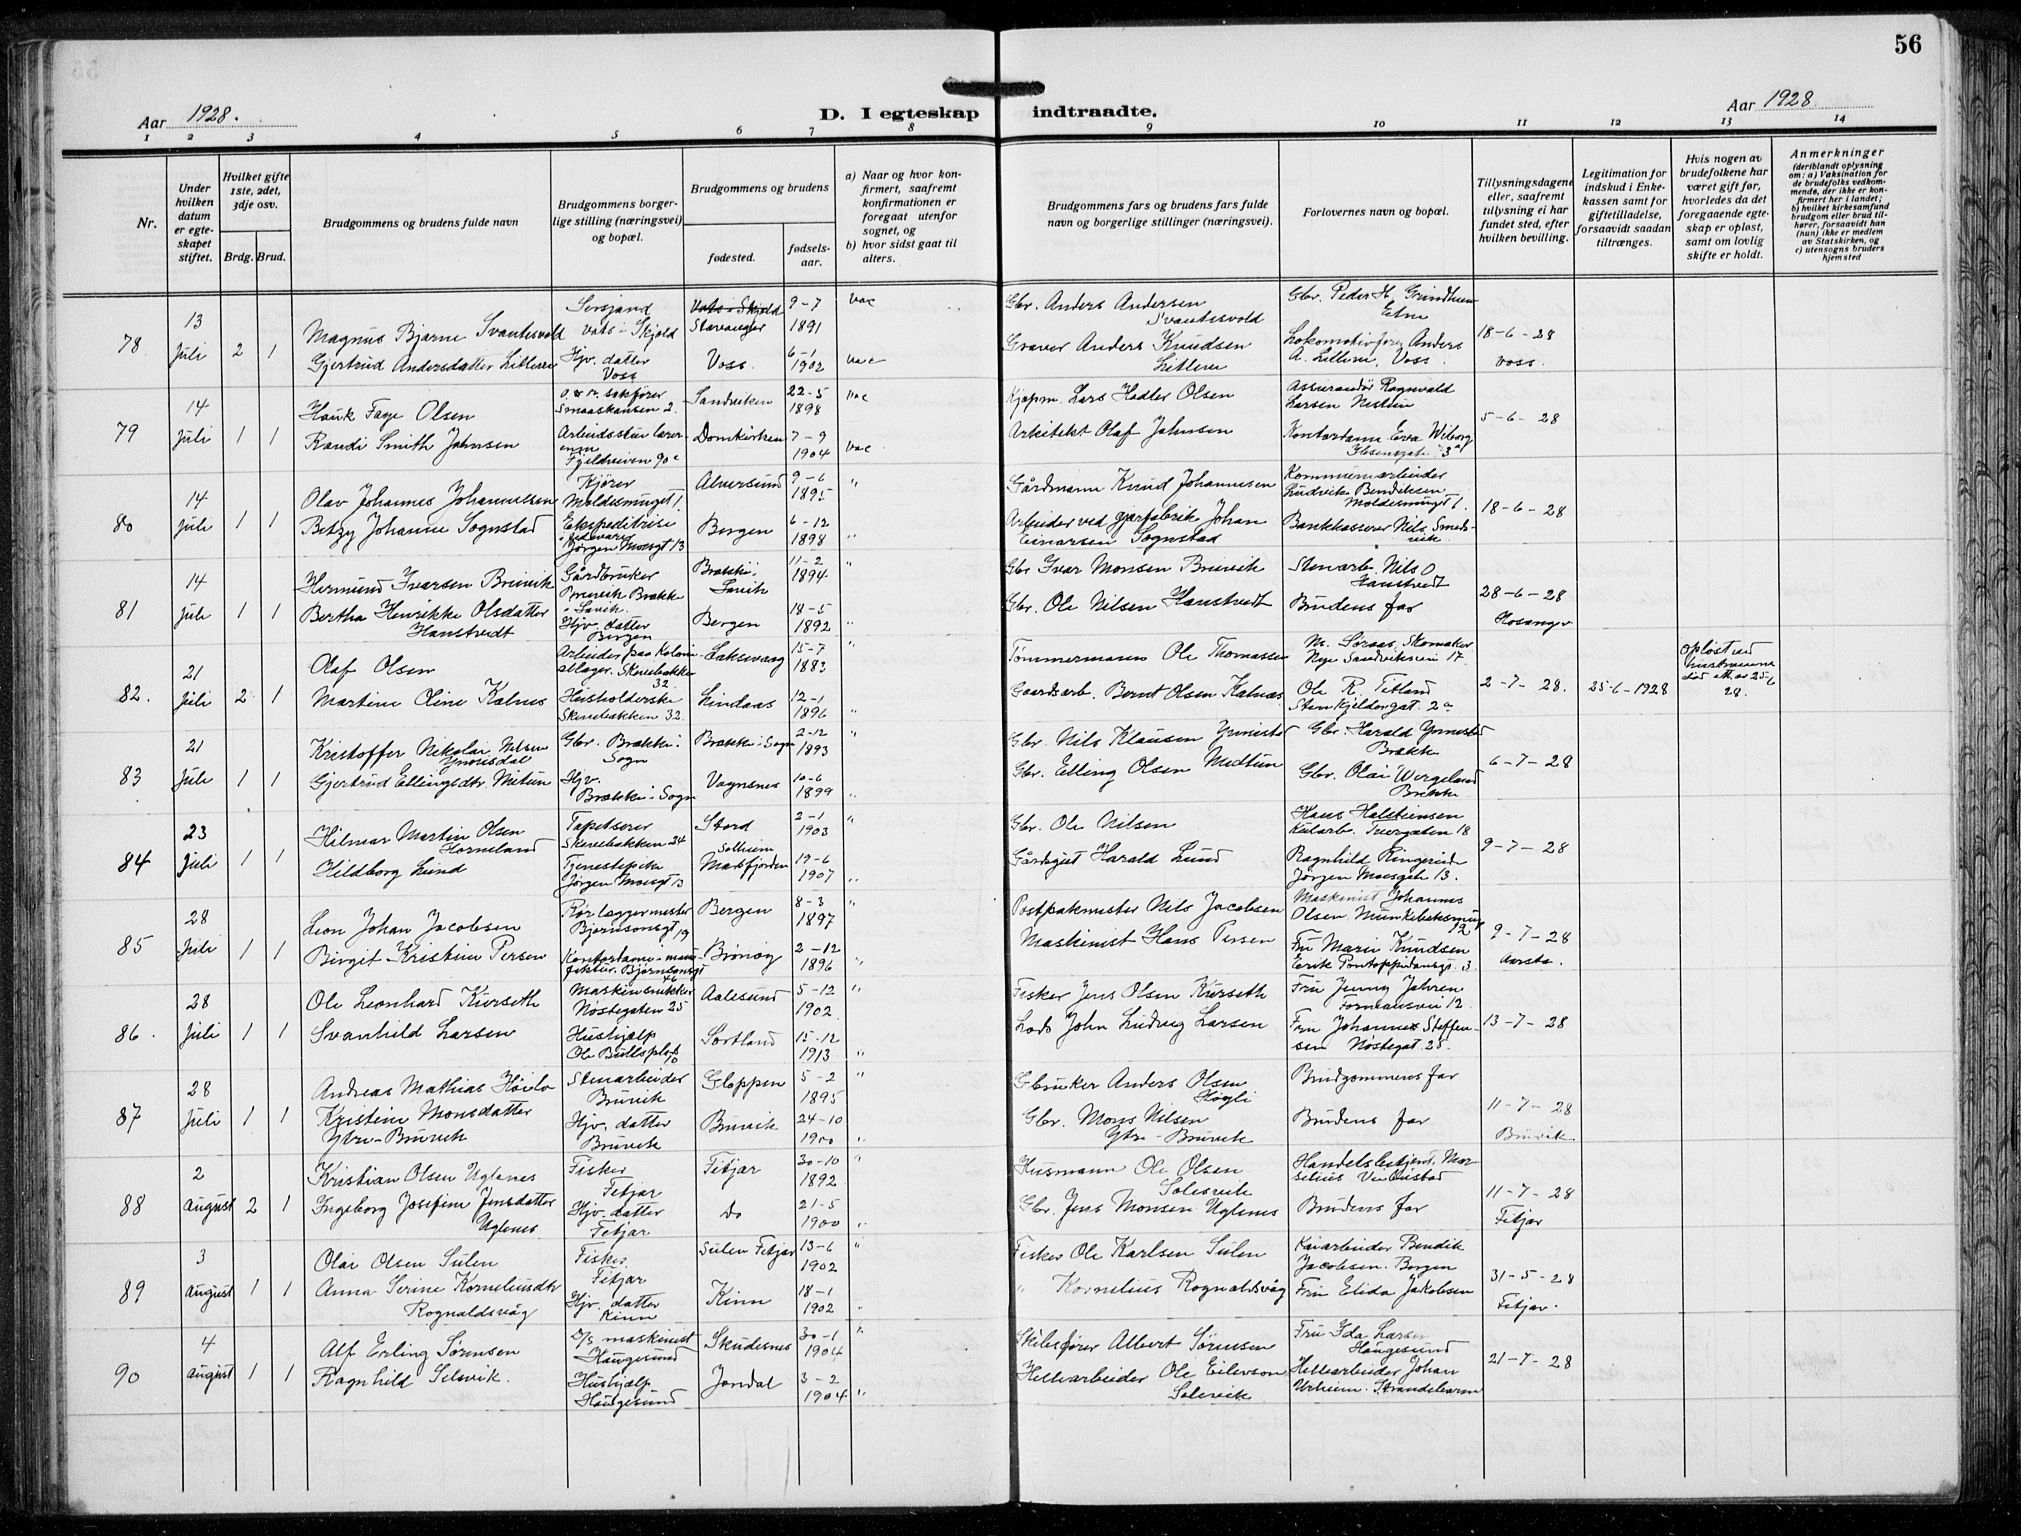 56
Aar 1928.
D. I egteskap indtraadte.
Aar 1928
1 2 3 4 5 6 7 8 9 10 11 12 13 14
Nr.
Under hvilken datum er egteskapet stiftet.
Hvilket gifte 1ste, 2det, 3dje osv.
Brdg. Brud.
Brudgommens og brudens fulde navn
Brudgommens borgerlige stilling (næringsvei) og bopæl.
Brudgommens og brudens
fødested.
fødselsaar.
a) Naar og hvor konfirmert, saafremt konfirmationen er foregaat utenfor sognet, og
b) hvor sidst gaat til alters.
Brudgommens fars og brudens fars fulde navn og borgerlige stillinger (næringsvei).
Forlovernes navn og bopæl.
Tillysningsdagene eller, saafremt tillysning ei har fundet sted, efter hvilken bevilling.
Legitimation for indskud i Enkekassen samt for giftetilladelse, forsaavidt saadan tiltrænges.
Hvis nogen av brudefolkene har været gift før, hvorledes da det foregaaende egteskap er opløst, samt om lovlig skifte er holdt.
Anmerkninger (deriblandt oplysning om: a) Vaksination for de brudefolks vedkommende, der ikke er konfirmert her i landet; b) hvilket kirkesamfund brudgom eller brud tilhører, forsaavidt han (hun) ikke er medlem av Statskirken, og c) utensogns bruders hjemsted
78 13 Juli 2 1
Magnus Bjarne Svantesvold
Sersjand Vats i Skjold
Vats i Skjold Stavanger
9-7 1891
vac
Gbr. Anders Andersen Svantesvold
Gbr. Peder H. Grindheim Etne
18-6-28 Voss.
Gjertrud Andersdatter Litlere
Hjv. datter Voss
Voss.
6-1 1902
vac
Graver Anders Knudsen Litlere
Lokomotivfører Anders A. Litlere, Voss.
79 14 Juli 1 1
Hauk Faye Olsen
o.r. sakfører Smaaskansen 2.
Sandviken
22-5 1898
vac
Kjøpm. Lars Hodter Olsen
Assurandør Ragnvald Larsen Nestun
5-6-28
Randi Smith Jahnsen
Arbeidsstue lærerinne Fjeldveien 90c
Domkirken
7-9 1904
vac
Arkitekt Olaf Jahnsen
Kontordame Eva Wiborg
80 14 Juli 1 1
Olav Johannes Johannessen
Kjører Moldesmuget 1.
Alversund
9-6 1895
"
Gårdmann Knud Johannesen
Kommunearbeider Ludvik Bendiksen Moldesmuget 1.
18-6-28
Betzy Johanne Sognstad
Ekspeditrise i fedevarer Jørgen Moesgt 13
Bergen
6-12 1898
"
Arbeider ved gjærfabrik Johan Einarsen Sognstad
Bankkasserer Nils Smedsvik.
81 14 Juli 1 1
Hermund Ivarsen Brinvik
Gårdbruker Brekke i Lavik.
Brekke i Lavik
11-2 1894
"
Gbr Ivar Monsen Brinvik
Stenarb. Nils O Hanstvedt
28-6-28 Hosanger
Bertha Henrikke Olsdatter Hanstvedt
Hjv. datter Bergen
Bergen
18-5 1892
"
Gbr. Ole Nilsen Hanstvedt
Brudens far
82. 21 Juli 2 1
Olaf Olsen
Arbeider paa Kolonilager. Skivebakken 32
Laksevaag
15-7 1883
Tømmermann Ole Thomassen
M. Søraas, Skomaker Nye Sandviksvei 17.
2-7-28.
25-6-1928
Opløst ved hustruens død att. av 25-6 28.
Martine Oline Kalnes
Husholderske Skivebakken 32.
Lindaas
12-1 1896
"
Gaardsarb. Bernt Olsen Kalnes
Ole R. Titland Stenkjeldergat. 2a
83 21 Juli 1 1
Kristoffer Nikolai Nilsen Ynnisdal
Gbr. Brekke i Sogn
Brekke i Sogn
2-12 1893
"
Gbr. Nils Klausen
Gbr. Harald Brekke
6-7-28
Gjertrud Ellingsdtr. Metun
Hjv. Brekke i Sogn
Vagnsnes
10-6 1899
"
Gbr. Elling Olsen Medtun
Gbr. Olai Wergeland Brekke
84 23 Juli 1 1
Hilmar Martin Olsen Horneland
Tapetserer Skivebakken 24
Stord
2-1 1903
"
Gbr. Ole Nilsen
Hans Halsteinsen Kularb. 18
9-7-28
Hildborg Lund
Tjenestepike Jørgen Moesgt 13
Solheim Masfjorden
19-6 1907
"
Gårdgut Harald Lund
Ragnhild Jørgen Moesgate 13.
85 28 Juli 1 1
Leon Johan Jacobsen
Rørleggermester Bjørnsonsgt 19
Bergen
8-3 1897
"
Postpakmester Nils Jacobsen
Maskinist Johannes Olsen, Munkebeksmug 12
9-7-28 Aarsta.
Birgit Kristine Persen
Kontordame i manufaktur. Bjørnsonsgt 46
Brønøy
2-12 1896
"
Maskinist Hans Persen
Fru Marie Knudsen Erik Pontoppidansgt. 3.
86. 28 Juli 1 1
Ole Leonhard Kurseth
Maskinsnikker Nøstegaten 25
Aalesund
5-12 1902.
"
Fisker Jens Olsen Kurseth
Fru Jenny Jahren 12.
13-7-28
Svanhild Larsen
Hushjælp Ole Bullsplads
Sortland
15-12 1913
"
Lods John Ludvig Larsen
Fru Johanne Steffensen Nøstegat. 25.
87 28 Juli 1 1
Andreas Mathias
Stenarbeider Bruvik
Gloppen
5-2 1895
"
Gbruker Anders Olsen Høgli
Brudgommens far
11-7-28 Bruvik.
Kristine Monsdatter Ytre-Bruvik
Hjv. datter Bruvik
Bruvik
24-10 1900
"
Gbr. Mons Nilsen Ytre-Bruvik
Brudens far
88 2 August 2 1
Kristian Olsen Uglenes
Fisker Fitjar
Fitjar
30-10 1892
"
Husmann Ole Olsen Solesvik
Handelsbetjent
11-7-28 Fitjar
Ingeborg Josefine Jensdatter Uglenes
Hjv. datter Fitjar
Do
21-5 1900
"
Gbr. Jens Monsen Uglenes
Brudens far
89 3 August 1 1
Olai Olsen Sulen
Fisker. Fitjar
Sulen Fitjar
13-6 1902
"
Fisker Ole Karlsen Sulen
Kaiarbeider Bendik Jacobsen. Bergen
31-5-28 Fitjar.
Anna Serine Korneliusdtr Rognaldsvåg
Hjv. datter Kinn
Kinn
18-1 1902
"
" Kornelius Rognaldsvåg
Fru Elida Jakobsen
90 4 August 1 1
Alf Erling Sørensen
D/S maskinist Haugesund
Skudesnes
30-1 1904
"
Skibsfører Albert Sørensen
Fru Ida Larsen Haugesund
21-7-28
Ragnhild Selsvik.
Hushjælp Haugesund
Jondal
3-2 1904
"
Hellearbeider Ole Eilevson Solsvik
Hellearbeider Johan Utheim. Strandebarm